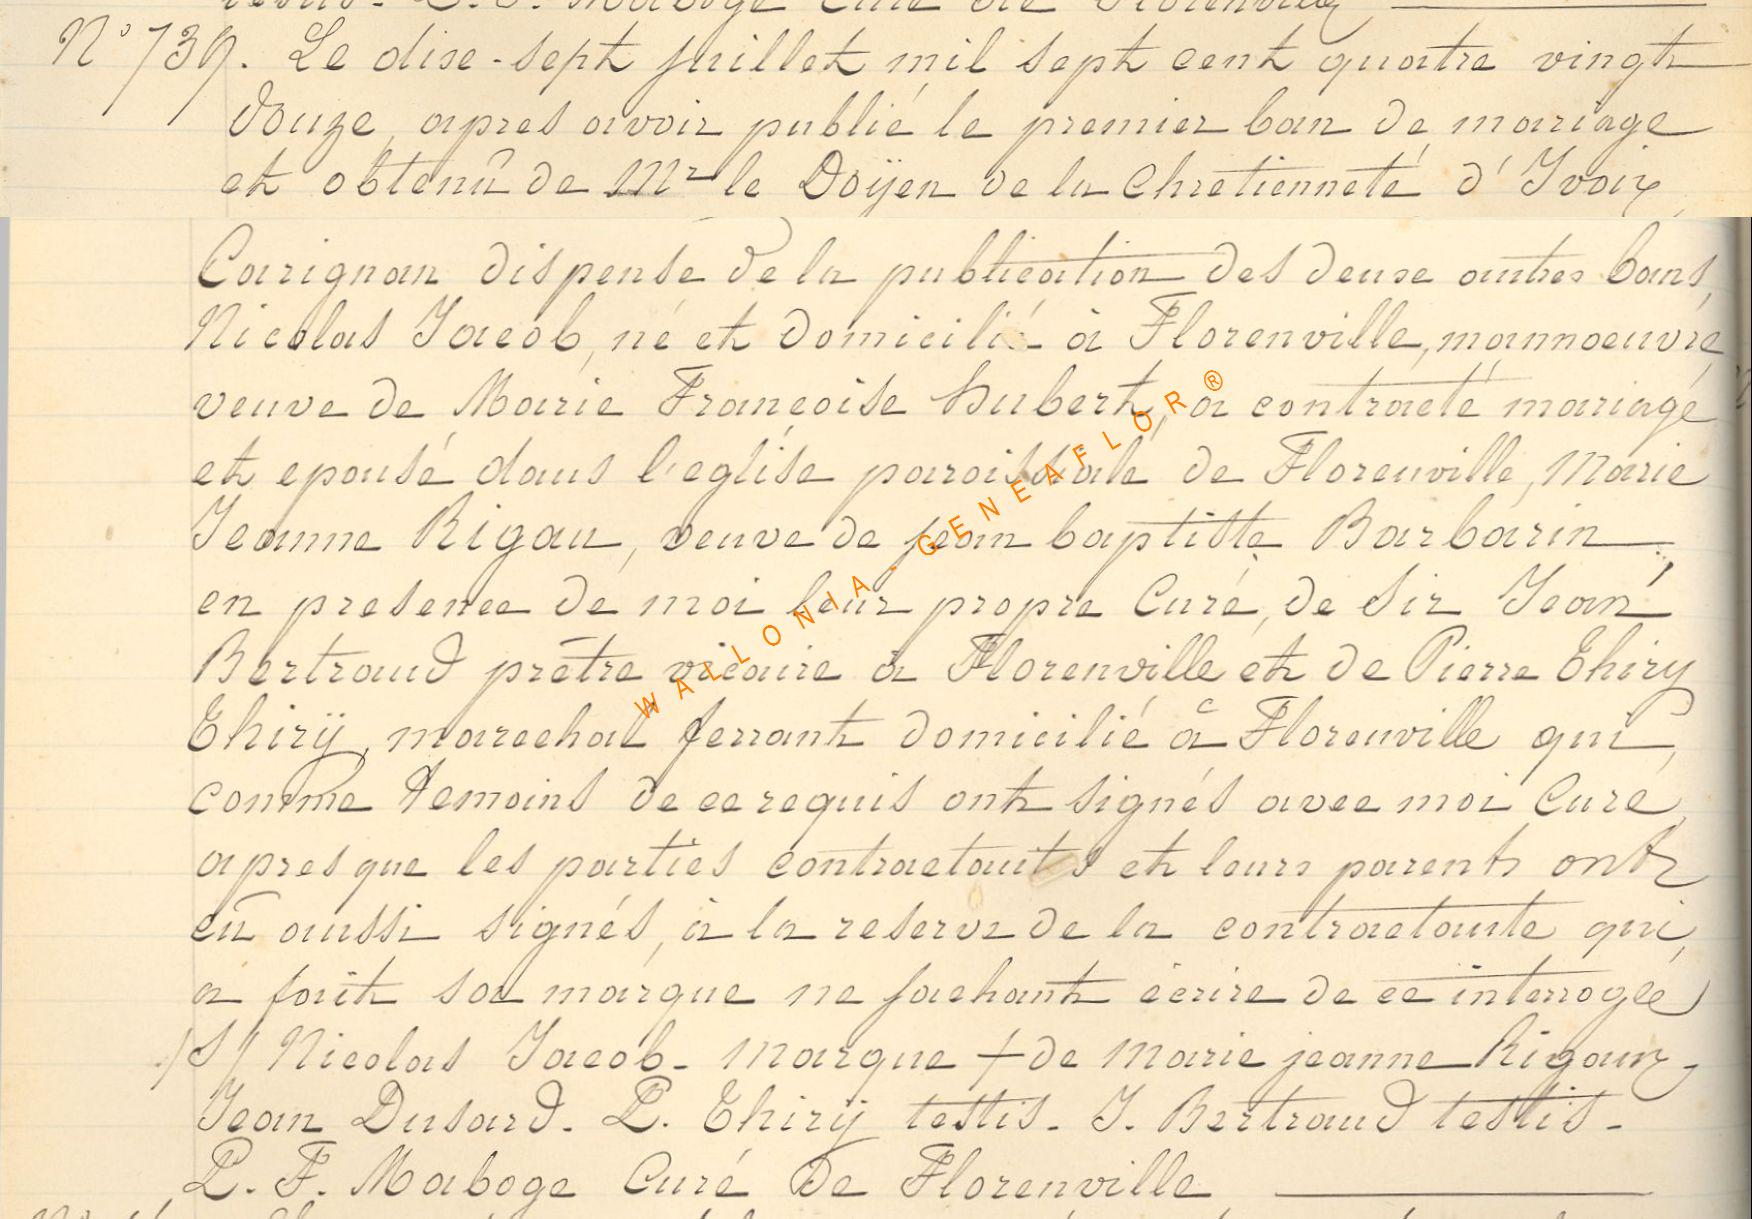 N° 739. Le dixe-sept juillet mil sept cent quatre vingt
douze, apres avoir publié le premier ban de mariage
et obtenû de Mr le Doÿen de la Chretienneté d'Yvoix
Carignan dispense de la publication des deuxe autres bans,
Nicolas Jacob, né et domicilié à Florenville, mannoeuvre,
veuve de Marie Françoise hubert, a contracté mariage
et epousé dans l'eglise paroissiale de Florenville, Marie
Jeanne Rigau, veuve de jean baptiste Barbarin
en presence de moi leur propre Curé, de Sir Jean
Bertrand prêtre vicaire à Florenville et de Pierre Thiry
Thirÿ, marechal ferrant domicilié à Florenville qui,
comme temoins de ce requis ont signés avec moi Curé,
apres que les parties contractants et leurs parents ont
eû aussi signés, à la reserve de la contractante qui,
a fait sa marque ne sachant écrire de ce interrogée
/S/ Nicolas Jacob - Marque + de Marie jeanne Rigaux -
Jean Dusard. P. Thirÿ testis. J. Bertrand testis -
P. F. Maboge Curé de Florenville
WALLONIA - GENEAFLOR ®